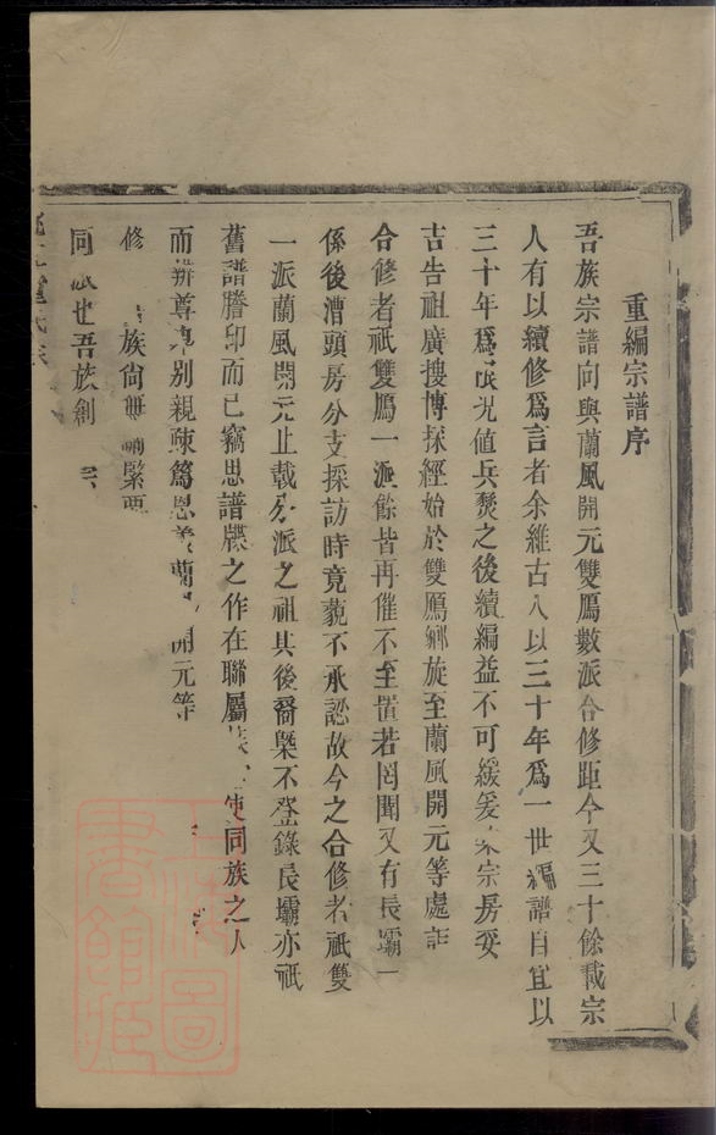 重編宗譜序
吾族宗譜向與蘭風開元雙鴈數派合修距今又三十餘載宗
人有以續修爲言者余維古人以三十年爲一世編譜自宜以
三十年爲 况值兵燹之後續編益不可緩爰 宗房妥
吉告祖廣搜博採經始於雙鴈鄉旋至蘭風開元等處詎
合修者祇雙鴈一派餘皆再催不至置若罔聞又有長壩一
係後漕頭房分支採訪時竟藐不承認故今之合修者祇雙
一派蘭風開元止載分派之祖其後裔槩不登錄長壩亦祇
舊譜謄印而已竊思譜牒之作在聯屬 使同族之人
而辨尊卑别親疎篤恩義蘭 開元等
修 族尚無 緊要
同 也吾族創
上海圖書館藏